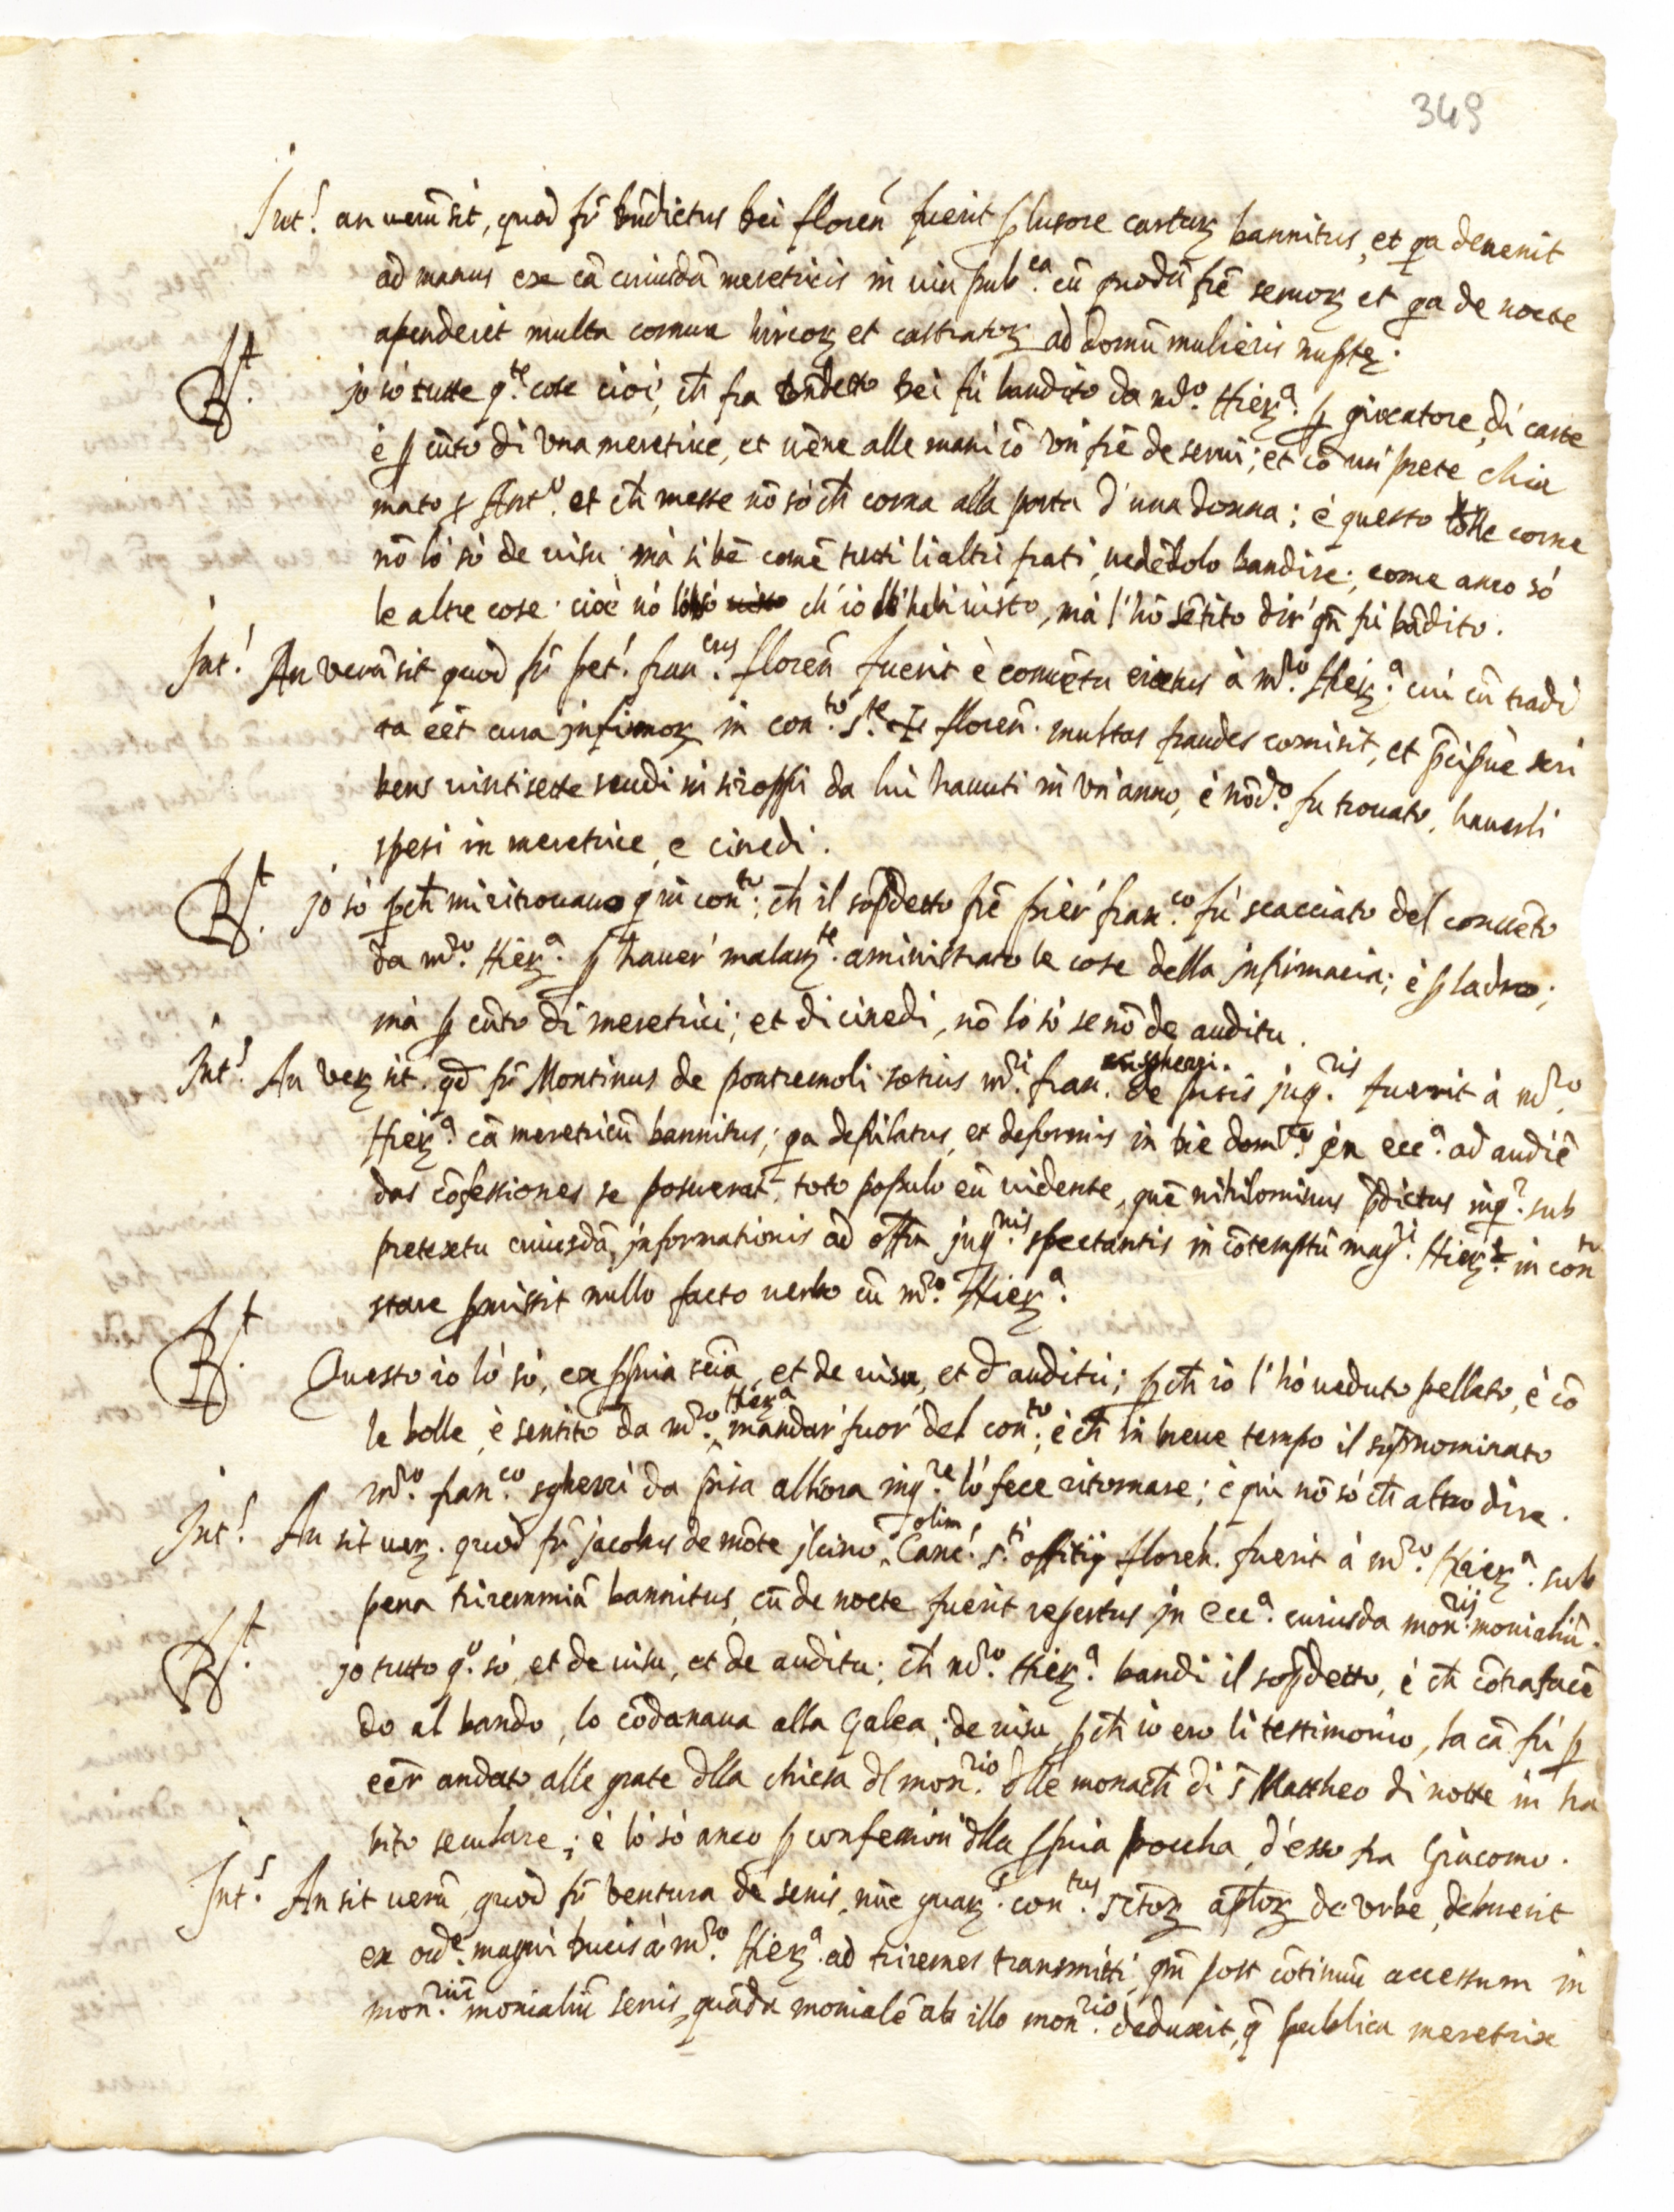 349
Int.s an uerũ sit, quod fr̃ bñdictus bei florẽn fuerit p lusore cartaꝝ bannitus, et qa deuenit
ad manus ex cã cuiusdã meretricis in uia pub.ca cũ quodã frẽ seruoꝝ et qa de nocte
apenderit multa cornua hircoꝝ et castratoꝝ ad domũ mulieris nuptę.
Rt. jo só tutte q.te cose cioè, ch̃ fra bñdetto bei fú bandito da m̃ro. Hierꝝ.a p giocatore, di carte
è p cũto di una meretrice, et uẽne alle mani cõ un frẽ de serui; et cõ un prete chia
mato s Ant.o et ch̃ messe nõ só ch̃ corna alla porta d'una donna: è questo delle corna
nõ ló só de uisu mà si bẽ comẽ tutti li altri frati, uedẽdolo bandire; come anco só
le altre cose. cioè nó ch'io l'habi uisto, mà l'hò sẽtito dir' qñ fú bãdito.
Int.s An uerũ sit quod fr̃ pet.s fran.cus florẽn fuerit è conuẽtu eiectus à m̃ro. Hierꝝ.a cui cũ tradi
ta eẽt cura jnfirmoꝝ in con.to S.te ☩ florẽn. multas fraudes comisit, et p̃cipuè scri
bens uintisette scudi in siroppi da lui hauuti in un'anno, è nõd.o fu trouato, hauerli
spesi in meretrice, e cinedi.
Rt. jo só pch̃ mi ritrouauo q in con.to; ch̃ il sop̃detto frẽ pier' fran.co fú scacciato del conuẽto
da m̃ro. Hierꝝ.a p hauer' malam.te aministrato le cose della jnfirmaria; è p ladro;
mà p cũto di meretrici; et di cinedi, nõ lo só se nõ de auditu.
Int.s An ueꝝ sit. qd̃ fr̃ Montinus de pontremoli sotius m̃ri fran. sgherri. de pisis jnq.ris fuerit à m̃ro.
Hierꝝ.a cã meretricũ bannitus; qa depilatus, et deformis in die dom.ca in ecc.a ad audiẽ
das cõfessiones se posuerat, toto populo eũ uidente, quẽ nihilominus p̃dictus inq.r sub
pretextu cuiusdã jnformationis ad offm̃ jnq.nis spectantis in cõtemptũ mag.ri Hierꝝ. in con.tu
stare pmisit nullo facto uerbo cũ m̃ro. Hierꝝ.a
Rt. Questo io ló só, ex ppria sciã, et de uisu, et d'auditu; pch̃ io l'hò ueduto pellato, è cõ
le bolle, è sentito da m̃ro. Hierꝝ.a mandar' fuor' del con.to; è ch̃ in breue tempo il sop̃nominato
m̃ro. fran.co sgherri da pisa allhora inq.re ló fece ritornare; è qui nõ só ch̃ altro dire.
Int.s An sit ueꝝ. quod fr̃ jacobus de mõte jlcino, olim Canc.s S.ti offitij florẽn. fuerit à m̃ro. Hierꝝ.a sub
pena triremmiũ bannitus, cũ de nocte fuerit repertus jn ecc.a cuiusda mon.rij monialiũ.
Rt. jo tutto q.o só, et de uisu, et de auditu; ch̃ m̃ro. Hierꝝ.a bandì il sop̃detto, è ch̃ cõtrafacẽ
do al bando, lo cõdanaua alla Galea; de uisu pch̃ io ero li testimonio, la cã fú p
eẽr andato alle grate dlla chiesa dl mon.rio dlle monach̃ di S̃ Mattheo di notte in ha
bito seculare; è ló só anco p confession' dlla ppria boccha, d'esso fra Giacomo.
Int.s An sit uerũ, quod fr̃ Ventura de senis, nũc guar.s con.tus Sctoꝝ aploꝝ de Urbe, debuerit
ex ord.e magni Ducis à m̃ro. Hierꝝ.a ad triremes transmitti, qm̃ post cõtinuũ accessum in
mon.riũ monialiũ senis, quãda monialẽ ab illo mon.rio deduxit, q̃ publica meretrix